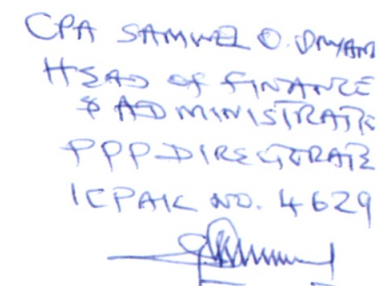 CPA SAMWEL O.
HEAD OF FINANCE
& ADMINISTRATE
PPP DIRECTRATE
ICPAK NO. 4629